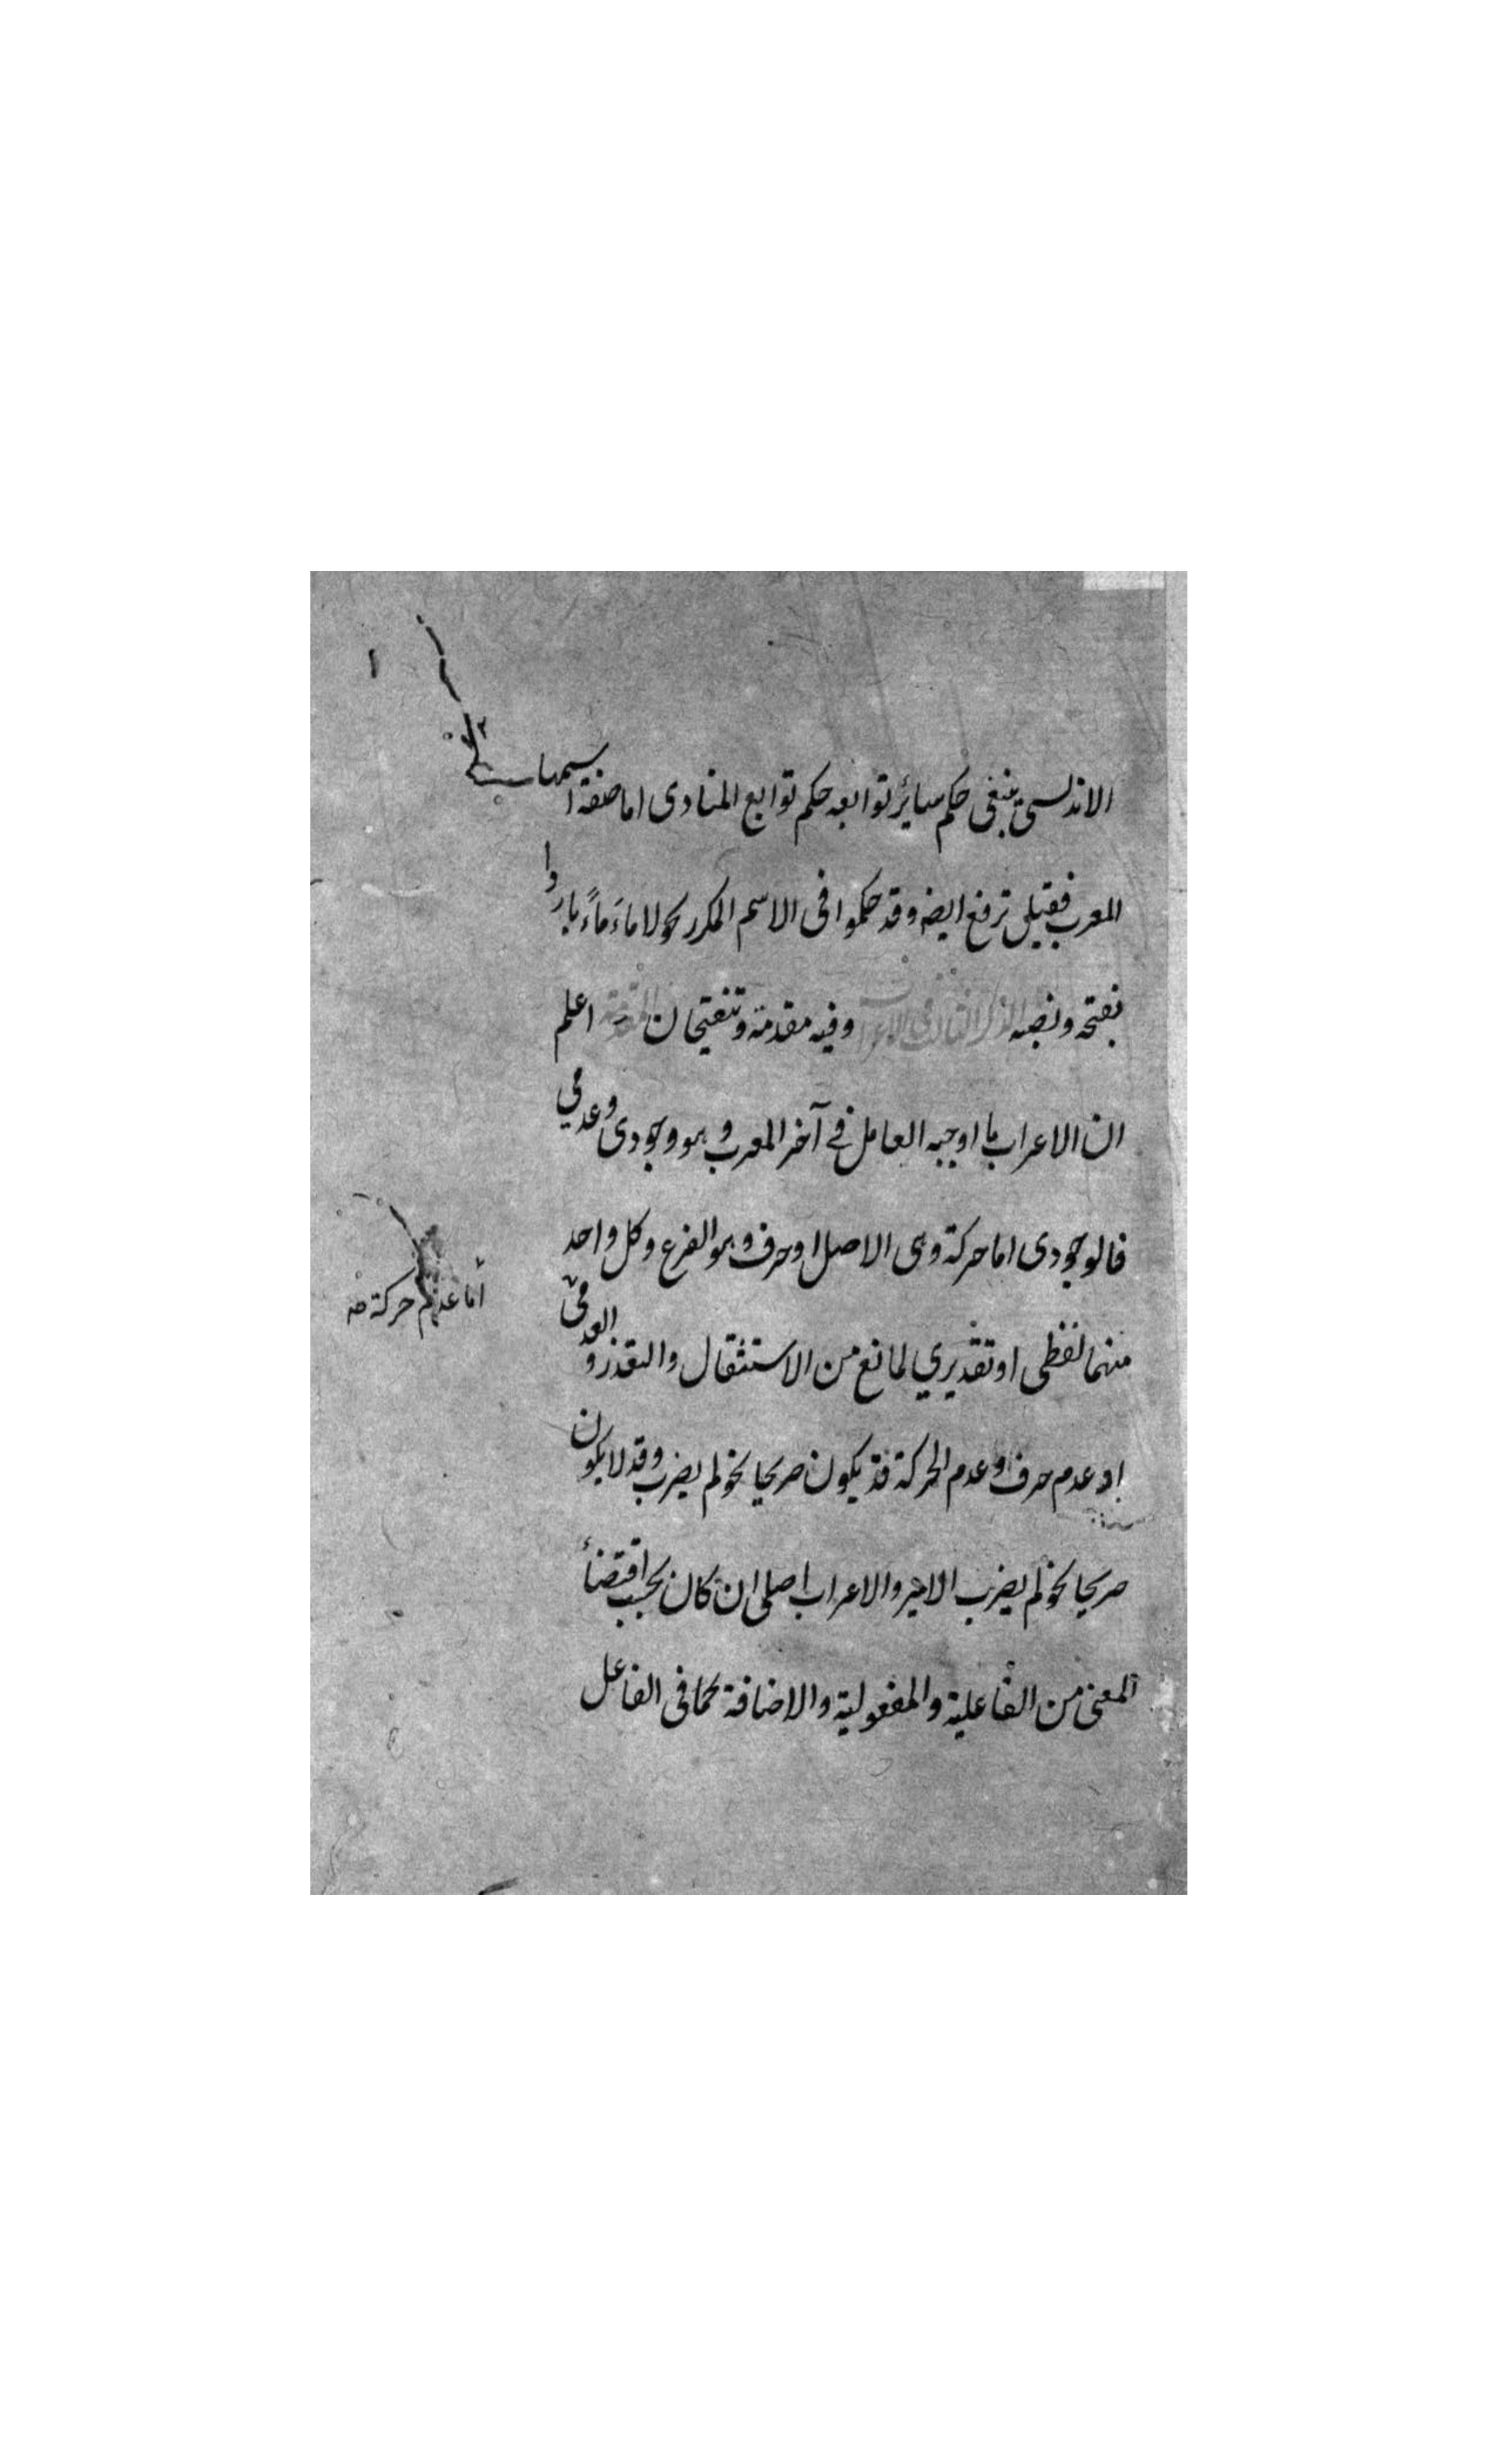 الاندلسى ينبغى حكم سائر توابعه حكم توابع المنادى اما صفة اسمها
المعرب فقيل ترفع ايضه وقد حكموا فى الاسم المكرر نحو لا ماءَ ماءً باردا
بفتحه ونصبه الذكر الثالث فى الاعراب وفيه مقدمة وتنقيحان المقدمة اعلم
ان الاعراب ما اوجبه العامل فى آخر المعرب وهو وجودى وعدمى
فالوجودى اما حركة وهى الاصل او حرف وهو الفرع وكل واحد
منهما لفظى او تقديرى لمانع من الاستثقال والتعذر والعدمى
اما عدم حركة
او عدم حرف وعدم الحركة قد يكون صريحا نحو لم يضرب وقد لا يكون
صريحا نحو لم يضرب الامير والاعراب اصلى ان كان بحسب اقتضاء
المعنى من الفاعلية والمفعولية والاضافة كما فى الفاعل